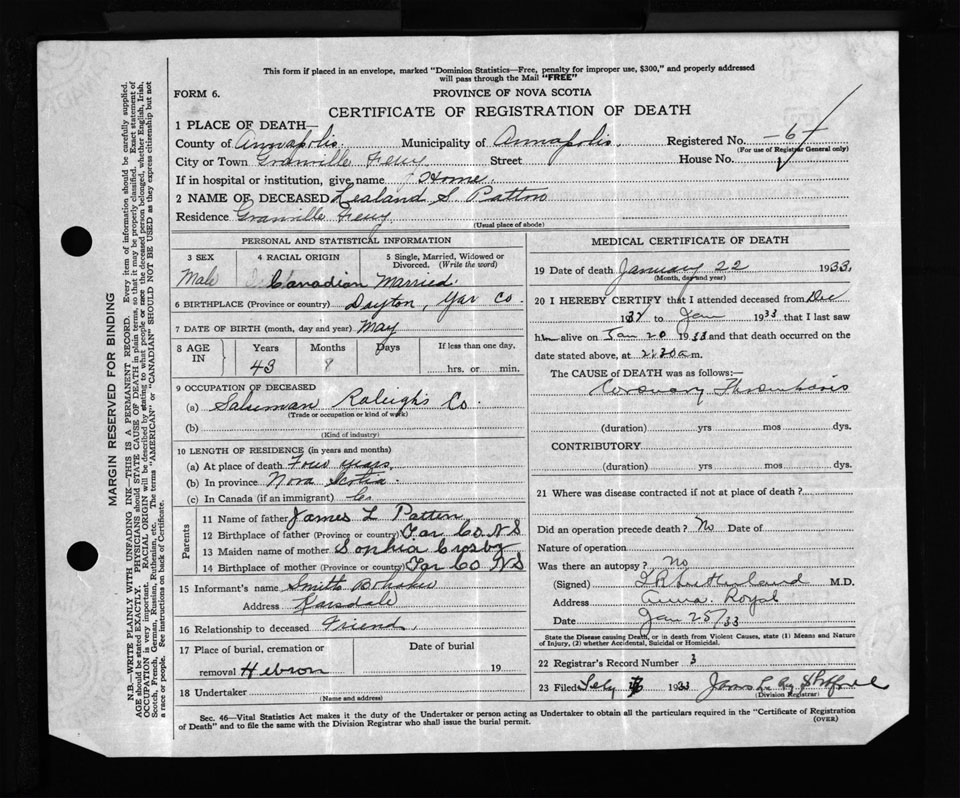 This form if placed in an envelope, marked "Dominion Statistics—Free, penalty for improper use, $300," and properly addressed
will pass through the Mail "FREE"
FORM 6.
PROVINCE OF NOVA SCOTIA
CERTIFICATE OF REGISTRATION OF DEATH
1 PLACE OF DEATH—
County of Annapolis. Municipality of Annapolis. Registered No. 6
(For use of Registrar General only)
City or Town Granville Ferry Street House No.
If in hospital or institution, give name Home.
2 NAME OF DECEASED Lealand S. Patton
Residence Granville Ferry
(Usual place of abode)
PERSONAL AND STATISTICAL INFORMATION
3 SEX
Male
4 RACIAL ORIGIN
Canadian
5 Single, Married, Widowed or
Divorced. (Write the word)
Married.
6 BIRTHPLACE (Province or country) Dayton, Yar Co.
7 DATE OF BIRTH (month, day and year) May
8 AGE IN
Years Months Days If less than one day,
43 8 hrs. or min.
9 OCCUPATION OF DECEASED
(a) Salesman Raleighs Co.
(Trade or occupation or kind of work)
(b)
(Kind of industry)
10 LENGTH OF RESIDENCE (in years and months)
(a) At place of death Four years.
(b) In province Nova Scotia.
(c) In Canada (if an immigrant)
Parents
11 Name of father James L Patten
12 Birthplace of father (Province or country) Yar Co. N S
13 Maiden name of mother Sophia Crosby
14 Birthplace of mother (Province or country) Yar Co N S
15 Informant's name Smith Bohaker
Address Karsdale
16 Relationship to deceased Friend.
17 Place of burial, cremation or
removal Hebron
Date of burial
19
18 Undertaker
(Name and address)
MEDICAL CERTIFICATE OF DEATH
19 Date of death January 22 1933.
(Month, day and year)
20 I HEREBY CERTIFY that I attended deceased from Dec
1932 to Jan 1933 that I last saw
him alive on Jan 20 1933 and that death occurred on the
date stated above, at 2:30 a.m.
The CAUSE of DEATH was as follows:
Coronary Thrombosis
(duration) yrs mos dys.
CONTRIBUTORY
(duration) yrs mos dys.
21 Where was disease contracted if not at place of death?
Did an operation precede death? No Date of
Nature of operation
Was there an autopsy? No
(Signed) Sutherland M.D.
Address Anna. Royal
Date Jan 25/33
State the Disease causing Death, or in death from Violent Causes, state (1) Means and Nature
of Injury, (2) whether Accidental, Suicidal or Homicidal.
22 Registrar's Record Number 3
23 Filed Feby 1933
(Division Registrar)
Sec. 46—Vital Statistics Act makes it the duty of the Undertaker or person acting as Undertaker to obtain all the particulars required in the "Certificate of Registration
of Death" and to file the same with the Division Registrar who shall issue the burial permit.
(OVER)
MARGIN RESERVED FOR BINDING
N.B.—WRITE PLAINLY WITH UNFADING INK—THIS IS A PERMANENT RECORD. Every item of information should be carefully supplied.
AGE should be stated EXACTLY. PHYSICIANS should STATE CAUSE OF DEATH in plain terms, so that it may be properly classified. Exact statement of
OCCUPATION is very important. RACIAL ORIGIN will be described by stating to what people or race the deceased person belonged, whether English, Irish,
Scotch, French, German, Russian, Ruthenian, etc. The terms "AMERICAN" or "CANADIAN" SHOULD NOT BE USED as they express citizenship but not
a race or people. See instructions on back of Certificate.